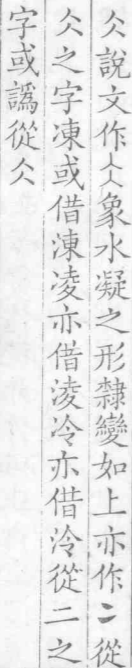 仌說文作仌象水凝之形隸變如上亦作冫從
仌之字凍或借涷凌亦借淩冷亦借泠從二之
字或譌從仌